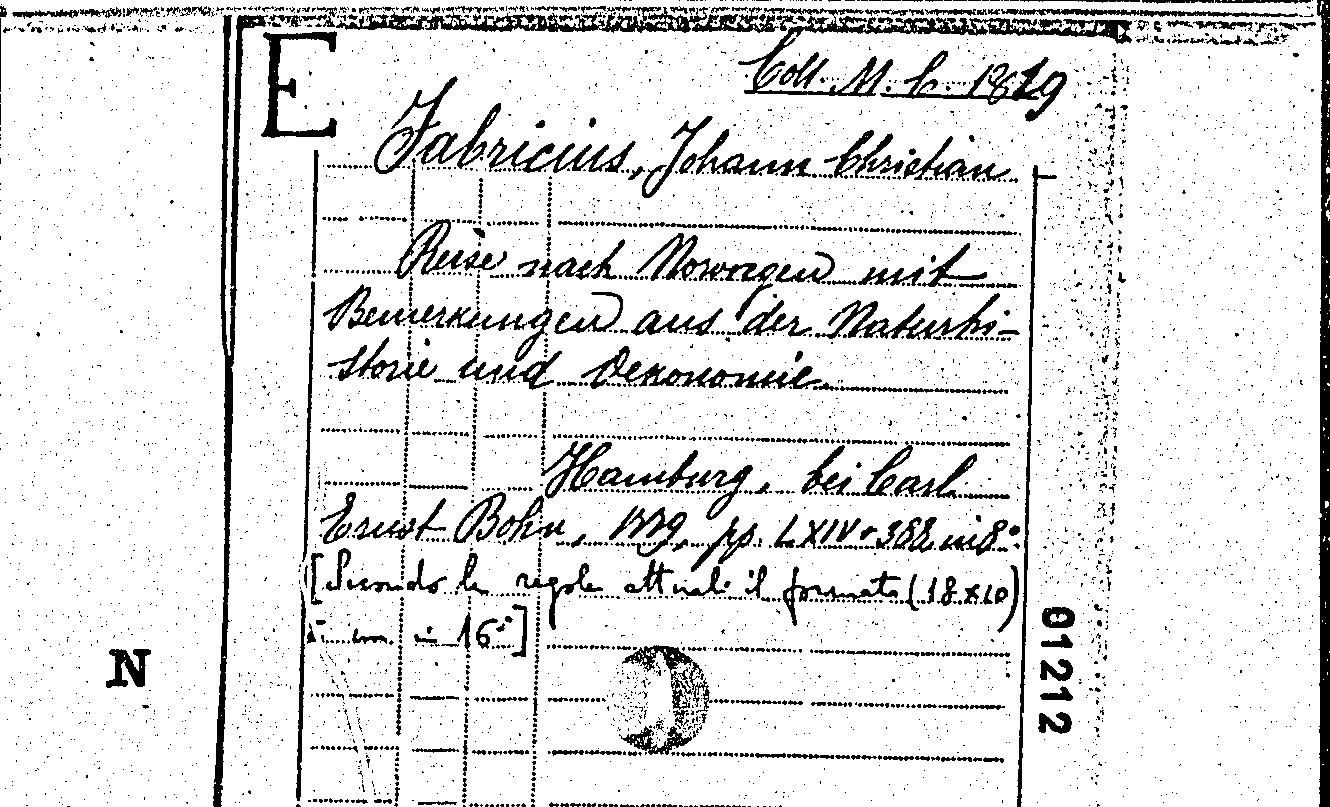 E
Coll. M. C. 1819
Fabricius, Johann Christian
Reise nach Norwegen mit
Bemerkungen aus der Naturhi-
storie und Oekonomie.
Hamburg, bei Carl
Ernst Bohn, 1779, pp. LXIV+388, in 8°.
[Secondo le regole attuali il formato (18x10)
è in 16°]
N
01212